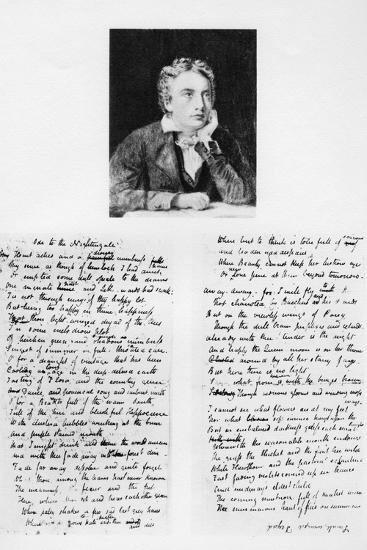 Ode to the Nightingale
My Heart aches and a drowsy numbness falls
My sense as though of hemlock I had drunk
Or emptied some dull opiate to the drains
One minute and Lethe wards had sunk
'Tis not through envy of thy happy lot
But being too happy in thine happiness
That thou light winged dryad of the trees
In some melodious plot
Of beechen green and shadows numberless
singest of summer in full throated ease
O for a draught of vintage that has been
Cooling an age in the deep delved earth
Tasting of Flora and the country green
Dance, and provencal song and sunburnt mirth
O for a Beaker full of the warm South
Full of the true and blushful Hippocrene
With bubbles winking at the brim
And purple stained mouth
That I might drink and leave the world unseen
And with thee fade away into forest dim
Fade far away dissolve and quite forget
What thou among the leaves hast never known
The weariness, the fever and the fret
Here, where men sit and hear each other groan
Where palsy shakes a few sad last grey hairs
Where youth grows pale and thin and dies
Where but to think is to be full of sorrow
and leaden eyed despairs
Where Beauty cannot keep her lustrous eyes
Or new love pine at them beyond tomorrow
Away, away for I will fly to thee
Not charioted by Bacchus and his pards
But on the viewless wings of Poesy
Though the dull brain perplexes and retards
Already with thee tender is the night
And haply the Queen moon is on her throne
around by all her starry fays
But here there is no light
what from heaven is with the breezes blown
Through verdurous glooms and winding ways
I cannot see what flowers are at my feet
Nor what soft incense hangs upon the boughs
But in embalmed darkness guess each sweet
the seasonable month endows
The grass the thicket and the fruit tree wild
White Hawthorn and the pastoral eglantine
Fast fading violets covered up in leaves
And midmays eldest child
The coming muskrose full of dewy wine
The murmurous haunt of flies on summer eves